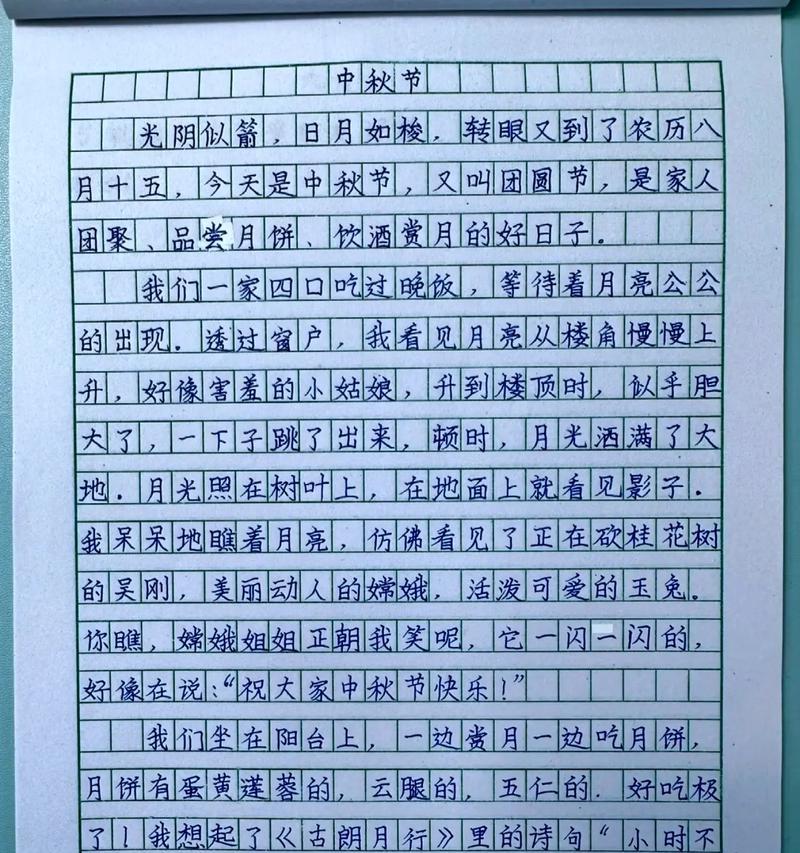 中秋节
光阴似箭，日月如梭，转眼又到了农历八
月十五，今天是中秋节，又叫团圆节，是家人
团聚、品尝月饼、饮酒赏月的好日子。
我们一家四口吃过晚饭，等待着月亮公公
的出现．透过窗户，我看见月亮从楼角慢慢上
升，好像害羞的小姑娘，升到楼顶时，似乎胆
大了，一下子跳了出来，顿时，月光洒满了大
地．月光照在树叶上，在地面上就看见影子．
我呆呆地瞧着月亮，仿佛看见了正在砍桂花树
的吴刚，美丽动人的嫦娥，活泼可爱的玉兔。
你瞧，嫦娥姐姐正朝我笑呢，它一闪一闪的，
好像在说：“祝大家中秋节快乐！”
我们坐在阳台上，一边赏月一边吃月饼，
月饼有蛋黄莲蓉的，云腿的，五仁的．好吃极
了！我想起了《古朗月行》里的诗句“小时不